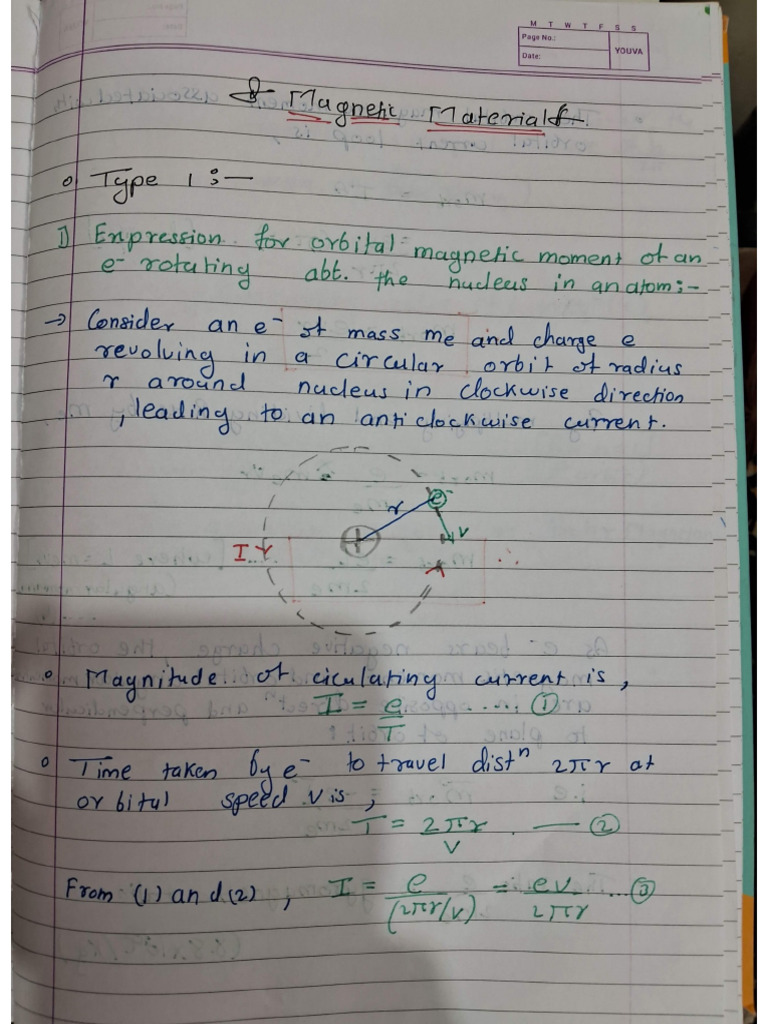 M T W T F S S
Page No.:
Date:
YOUVA
Magnetic Materials
Type 1 :-
1) Expression for orbital magnetic moment of an
e⁻ rotating abt. the nucleus in an atom :-
→ Consider an e⁻ of mass me and charge e
revolving in a circular orbit of radius
r around nucleus in clockwise direction
, leading to an anticlockwise current.
r
e⁻
v
+
I
Magnitude of ciculating current is,
I = e/T .... ①
Time taken by e⁻ to travel distⁿ 2πr at
orbital speed v is,
T = 2πr/v — ②
From (1) and (2), I = e/(2πr/v) = ev/2πr ...③